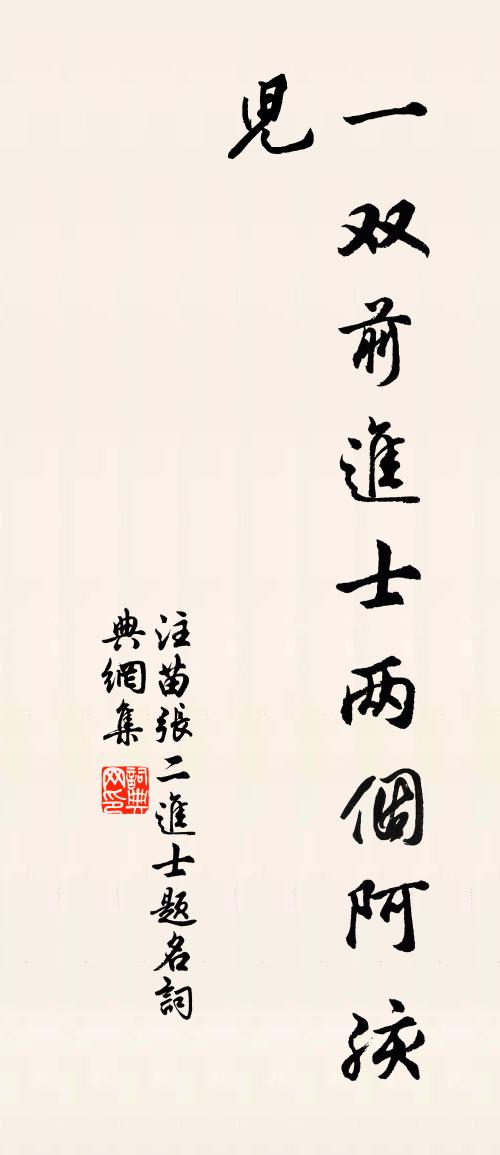 一双前進士两個阿孩
兒
注苗張二進士題名詞
典網集
詞典
网印